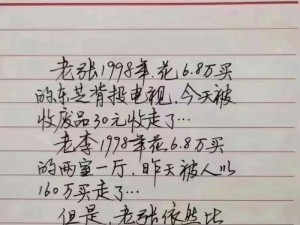 老张1998年,花6.8万买
的东芝背投电视,今天被
收废品30元收走了…
老李1998年花6.8万买
的两室一厅,昨天被人以
160万买走了…
但是,老张依然比